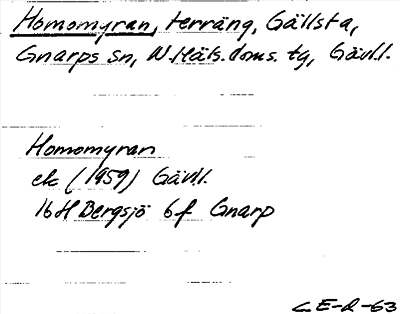 Homomyran, terräng, Gällsta,
Gnarps sn, N. Häls. doms. tg, Gävl.l.
Homomyran
ek (1959) Gävl.l.
16H Bergsjö 6f Gnarp
C.E-R-63